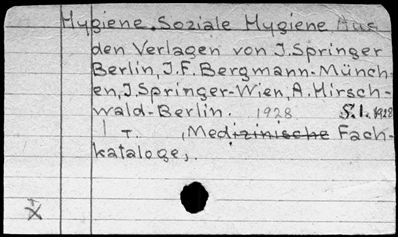 Hygiene. Soziale Hygiene. Aus
den Verlagen von J.Springer
Berlin, J.F. Bergmann-Münch-
en, J.Springer-Wien, A.Hirsch-
wald-Berlin. 1928 S.l. 1928
1 T. , Medizinische Fach-
kataloge,.
X